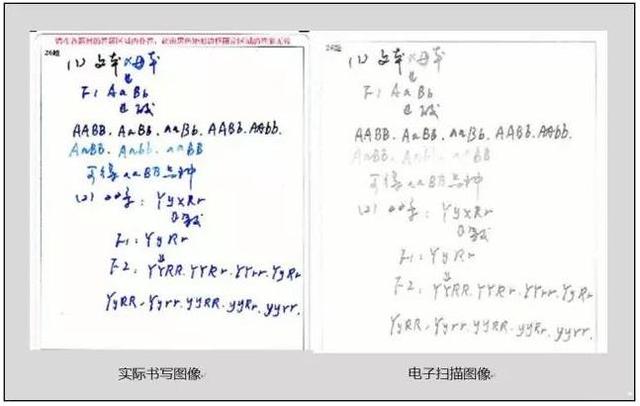 请在各题目的答题区域内作答，超出黑色矩形边框限定区域的答案无效
26题
(1) 父本×母本
↓
F1 AaBb
↓自交
AABB. AaBb. aaBb. AABb. AAbb.
AaBB. Aabb. aaBB
可得aaBB品种
(2) YyxRr
F1: YyRr
↓
F2: YYRR. YYRr. YYrr. YyRr
YyRR. Yyrr. yyRR. yyRr. yyrr.
实际书写图像
26题
(1) 父本×母本
↓
F1 AaBb
↓自交
AABB. AaBb. aaBb. AABb. AAbb.
AaBB. Aabb. aaBB
可得aaBB品种
(2) YyxRr
F1: YyRr
↓
F2: YYRR. YYRr. YYrr. YyRr
YyRR. Yyrr. yyRR. yyRr. yyrr.
电子扫描图像